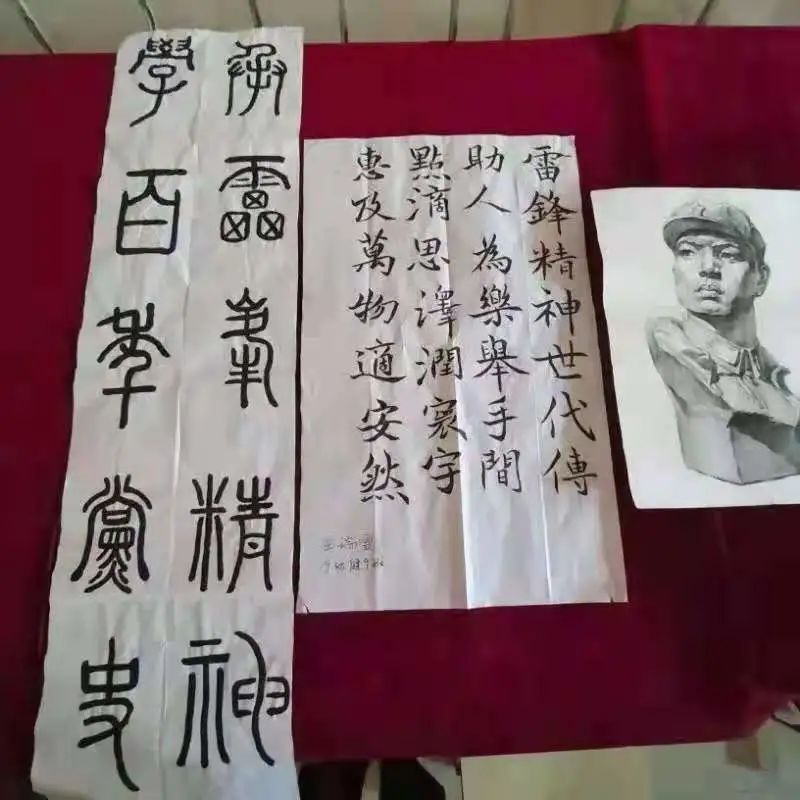 承雷夆精神
學百年黨史
雷鋒精神世代傳
助人為樂舉手間
點滴思澤潤寰宇
惠及萬物適安然